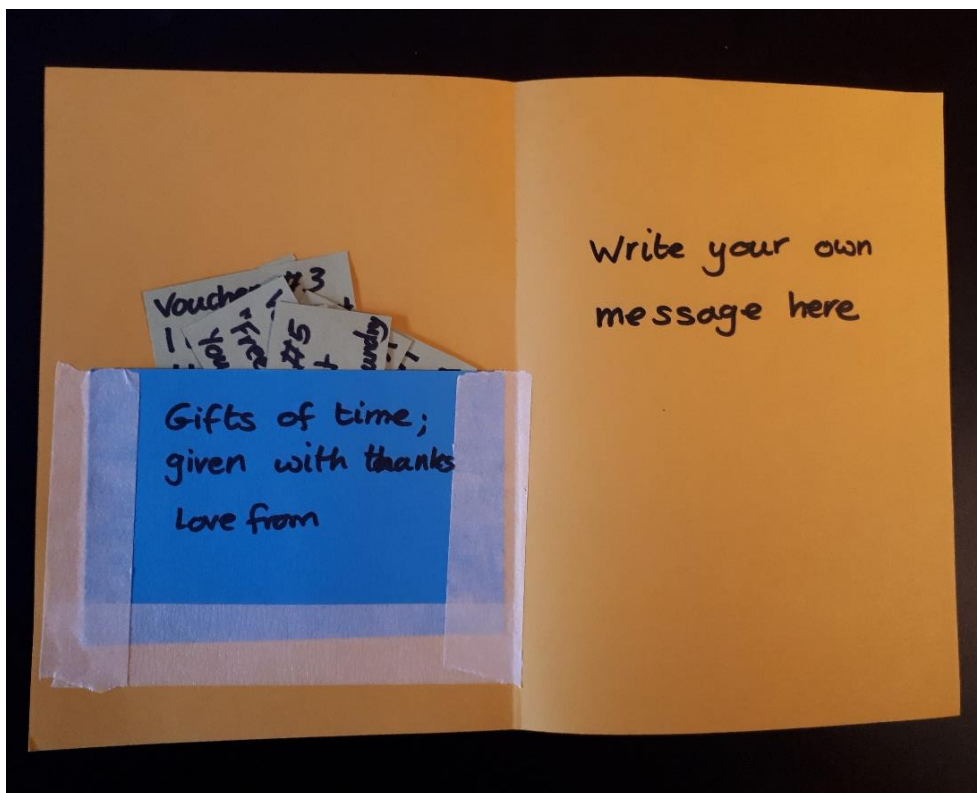 Voucher #3
Gifts of time;
given with thanks
Love from
Write your own
message here